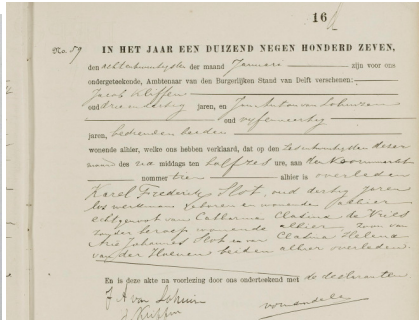 16
No. 59 IN HET JAAR EEN DUIZEND NEGEN HONDERD ZEVEN,
den achtentwintigsten der maand Januari zijn voor ons
ondergeteekende, Ambtenaar van den Burgerlijken Stand van Delft verschenen:
Jacob
oud drieendertig jaren, en van
oud vijfenveertig
jaren, bedienden beiden
wonende alhier, welke ons hebben verklaard, dat op den zesentwintigsten dezer
maand des na middags ten half zes ure, aan de Voormarkt
nommer tien alhier is overleden
Karel Frederik Slot, oud dertig jaren
los werkman geboren en wonende alhier
echtgenoot van Catharina Clasina de Vries
zonder beroep wonende alhier, zoon van
Arie Johannes Slot en van Clasina Helena
van der Hoeven beiden alhier overleden.
En is deze akte na voorlezing door ons onderteekend met de declaranten
J A van
J. Kliffen